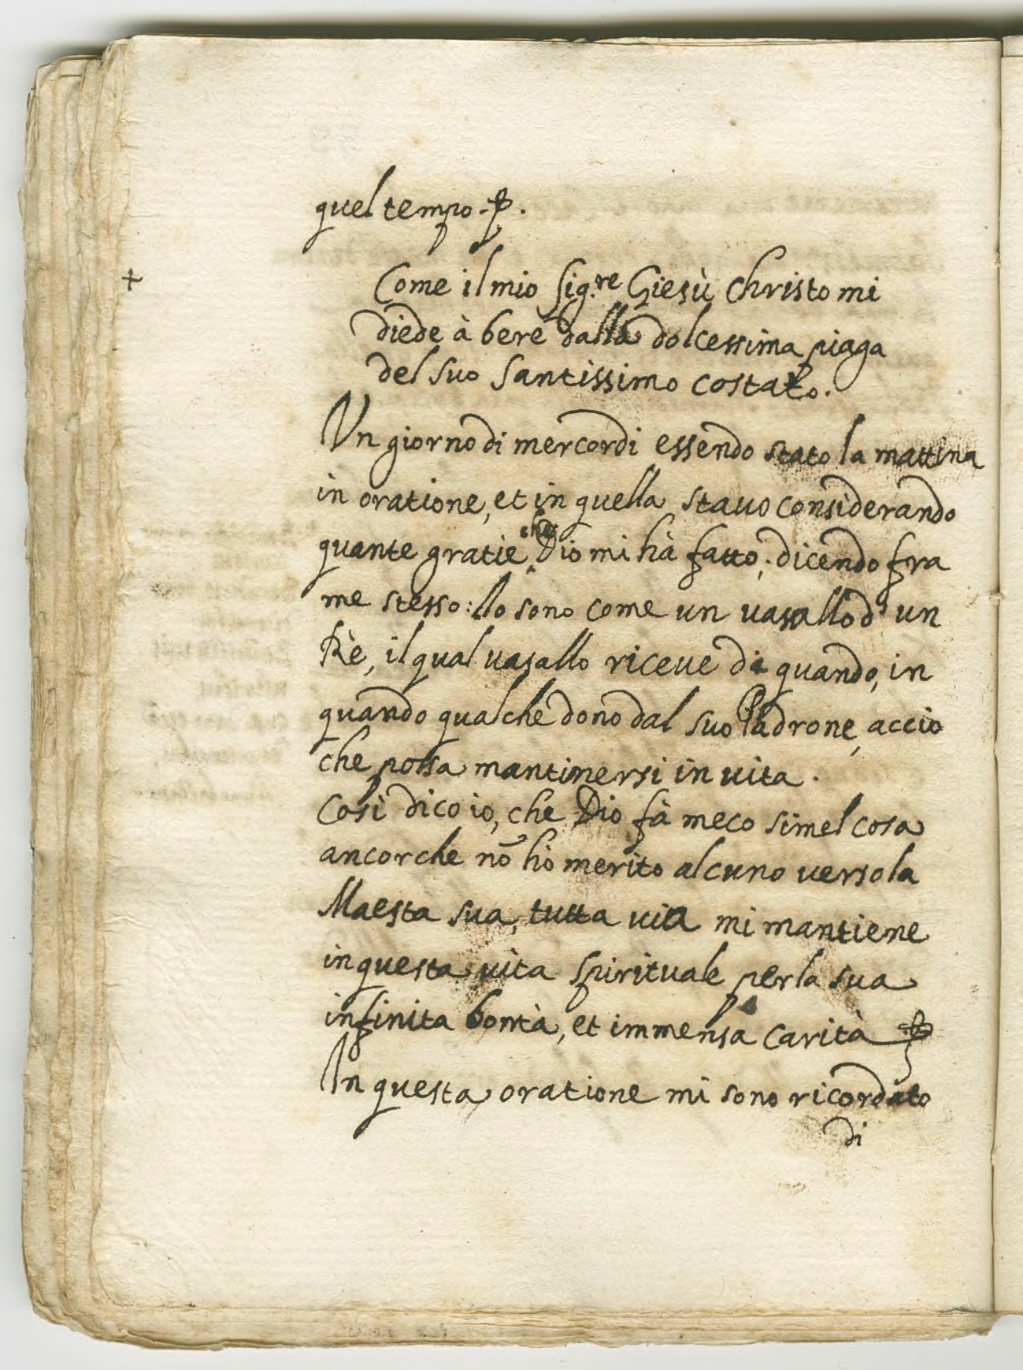 quel tempo.
+
Come il mio Sig.re Giesù Christo mi
diede à bere dalla dolcessima piaga
del suo Santissimo costato.
Un giorno di mercordi essendo stato la mattina
in oratione, et in quella stauo considerando
quante gratie che Dio mi hà fatto; dicendo fra
me stesso: Io sono come un uasallo d' un
Rè, il qual uasallo riceue di quando, in
quando qualche dono dal suo Padrone, accio
che possa mantinersi in uita.
Cosi dico io, che Dio fà meco simel cosa
ancorche nõ hò merito alcuno uerso la
Maesta sua, tutta uia mi mantiene
in questa uita spirituale per la sua
infinita bontà, et immensa carità
In questa oratione mi sono ricordato
di